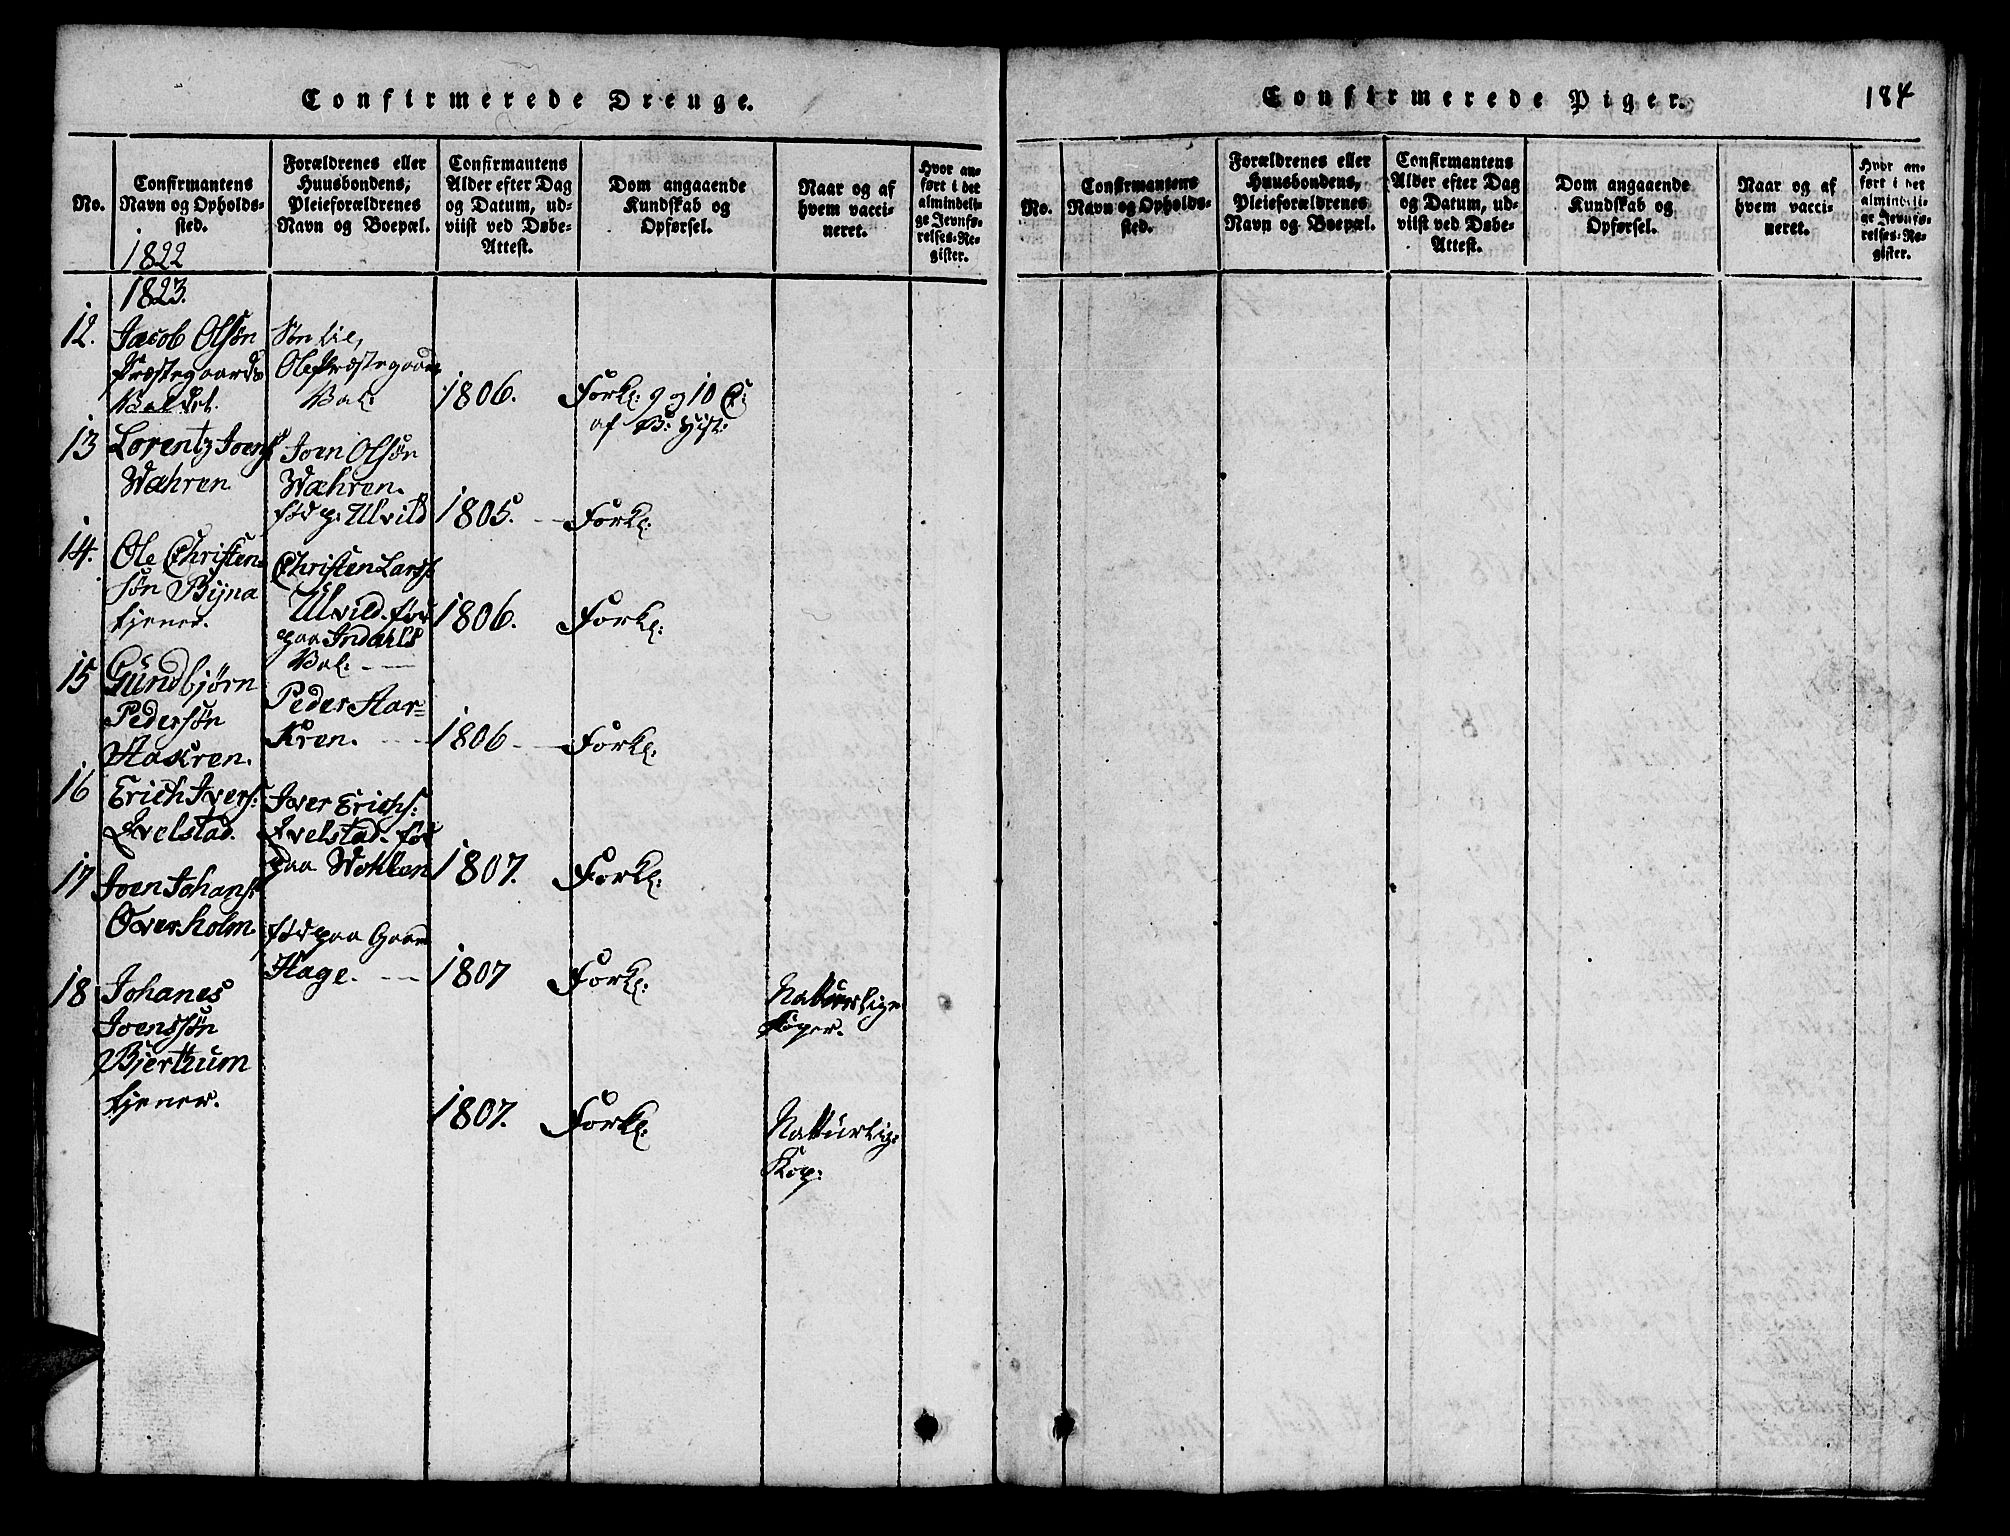 Confirmerede Drenge.
No.
Confirmantens
Navn og Opholds-
sted.
1822
Forældrenes eller
Huusbondens,
Pleieforældrenes
Navn og Boepæl.
Confirmantens
Alder efter Dag
og Datum, ud-
viist ved Døbe-
Attest.
Dom angaaende
Kundskab og
Opførsel.
Naar og af
hvem vacci-
neret.
Hvor an-
ført i det
almindeli-
ge Jevnfø-
relses-Re-
gister.
1823.
12.
Jacob Olsøn
Præstegaards
Valdet.
Ole Præstegaards
Val:
1806.
Forkl: 9 og 10 C:
af B: Hist:
13
Lorentz Joens:
Wæhren
Joen Olsøn
Wæhren.
fød p: Ulvild
1805.
Forkl:
14.
Ole Christen-
søn Byna
tjener.
Christen Larss:
Ulvild. fød
paa Indahls
Val:
1806.
Forkl:
15
Gundbjørn
Pedersøn
HaKren.
Peder Har-
Kren.
1806
Forkl:
16
Erich Ivers:
Avelstad.
Iver Erichs:
Avelstad. fød
paa Wokken
1807.
Forkl:
17
Joen Johans:
Overholm
fød paa Gaard
Hage.
1807
Forkl:
Natturlige
Koper.
18
Johanes
Joenssøn
Bjertnum
tjener.
1807.
Forkl:
Natturlig:
Kop:
Confirmerede Piger.
184
No.
Confirmantens
Navn og Opholds-
sted.
Forældrenes eller
Huusbondens,
Pleieforældrenes
Navn og Boepæl.
Confirmantens
Alder efter Dag
og Datum, ud-
viist ved Døbe-
Attest.
Dom angaaende
Kundskab og
Opførsel.
Naar og af
hvem vacci-
neret.
Hvor an-
ført i det
almindeli-
ge Jevnfø-
relses-Re-
gister.